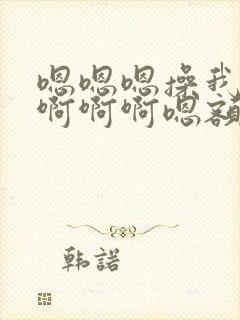 嗯嗯嗯操我
啊啊啊嗯额
韩諾